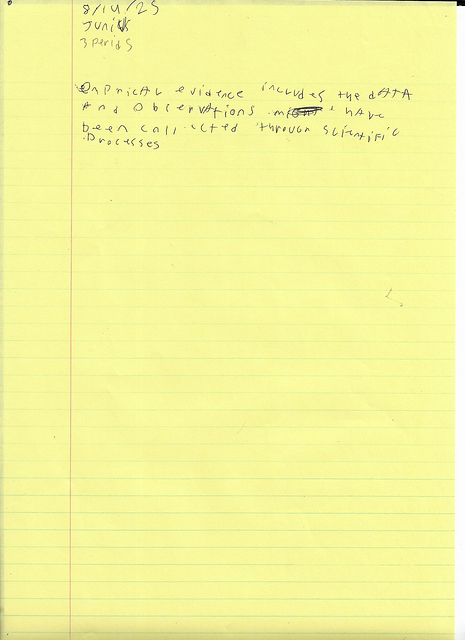 8/14/25
Junius
3 periods
Enprical evidence includes the dATA
And Observations have
been collected through scientific
Processes